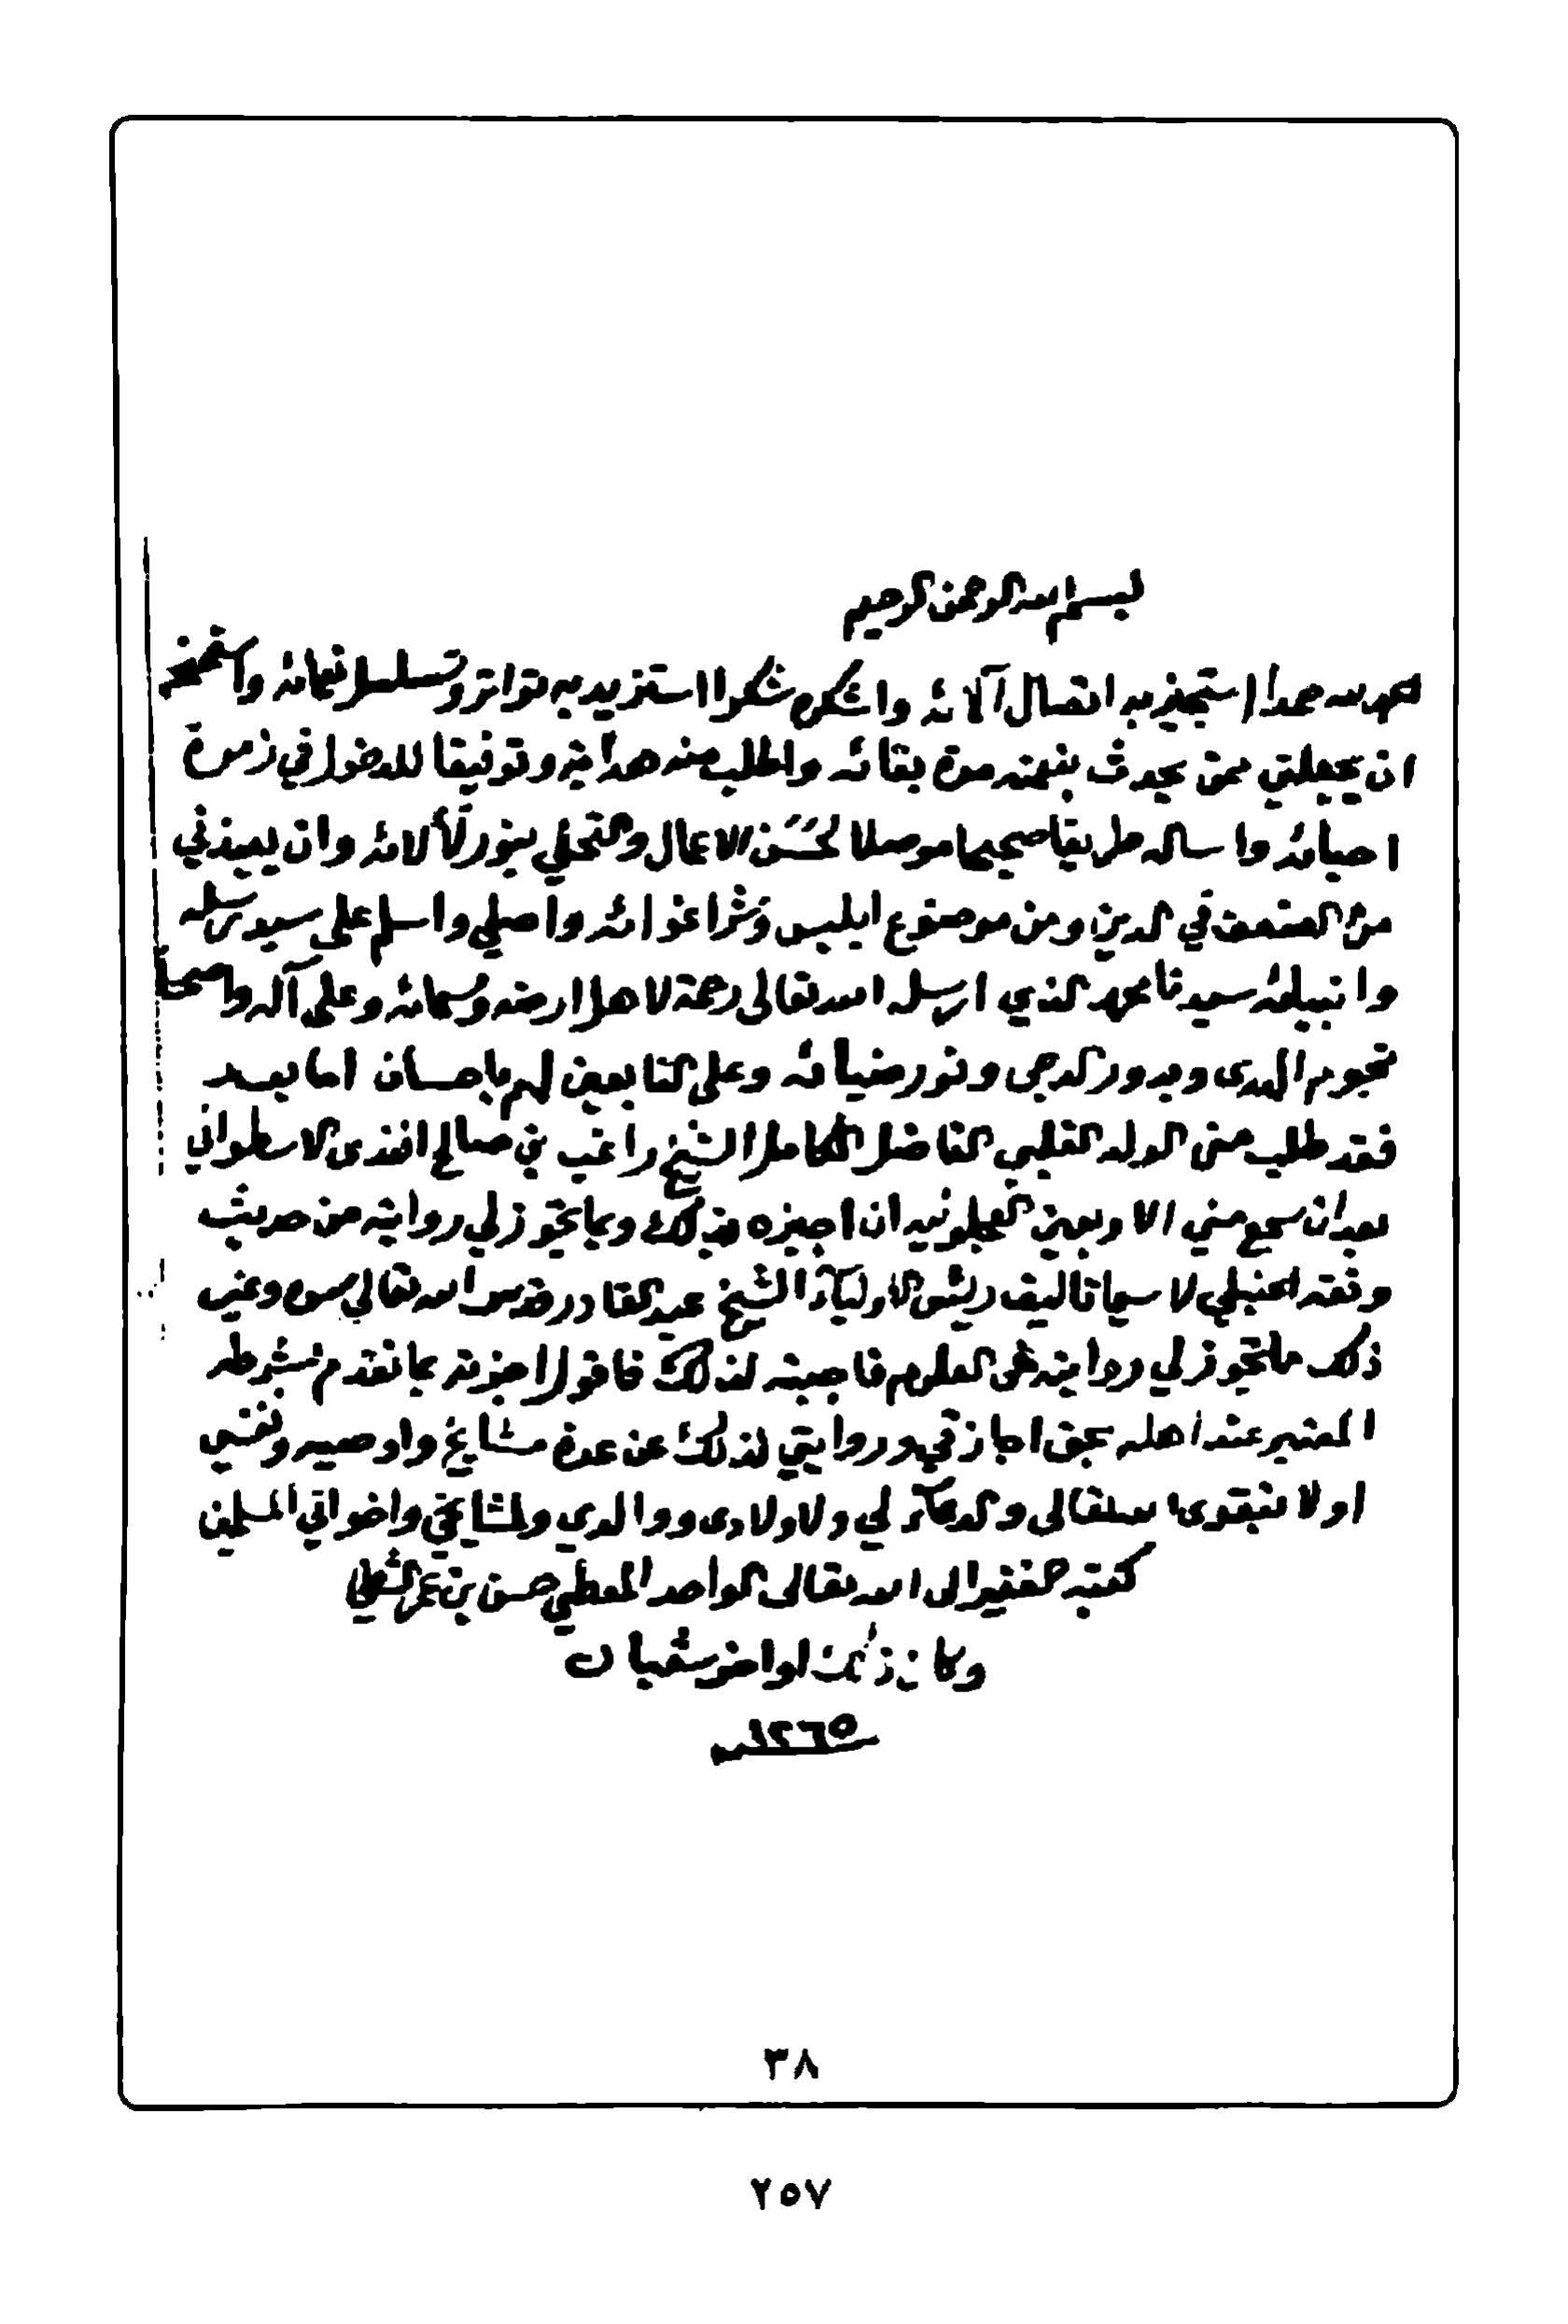 بسم الله الرحمن الرحيم
احمد لله حمدا استجيز به اتصال آلائه واشكره شكرا استزيد به تواتر وتسلسل نعمائه و
ان يجعلني ممن يحدث بنعمته مدة بقائه واطلب منه هداية وتوفيقا للدخول في زمرة
احبائه واساله طريقا صحيحا موصلا لحُسْن الاعمال والتحلي بنور لألائه وان يعيذني
من الضعف في الدين ومن موضوع ابليس وشر اغوائه واصلي واسلم على سيد رسله
وانبيائه سيدنا محمد الذي ارسله الله تعالى رحمة لاهل ارضه وسمائه وعلى آله واصحابه
نجوم الهدى وبدور الدجى ونور ضيائه وعلى التابعين لهم باحسان اما بعد
فقد طلب مني الولد القلبي الفاضل الكامل الشيخ راغب بن صالح افندى الاسطواني
بعد ان سمع مني الاربعين العجلونية ان اجيزه بذلك وبما يجوز لي روايته من حديث
وفقه الحنبلي لا سيما تاليف رئيس الاولياء الشيخ عبد القادر قدس الله تعالى سره وغير
ذلك ما يجوز لي روايته من العلوم فاجبته لذلك فاقول اجزته بما تقدم بشرطه
المعتبر عند اهله بحق اجازتي وروايتي لذلك عن عدة مشايخ واوصيه ونفسي
اولا بتقوى الله تعالى والدعاء لي ولاولادى ووالدي ولمشايخي واخواني المسلمين
كتبه الفقير الى الله تعالى الواحد المعطي حسن بن عمر الشطي
وكان ذلك لواخر شعبان
١٢٦٥
٣٨
٢٥٧